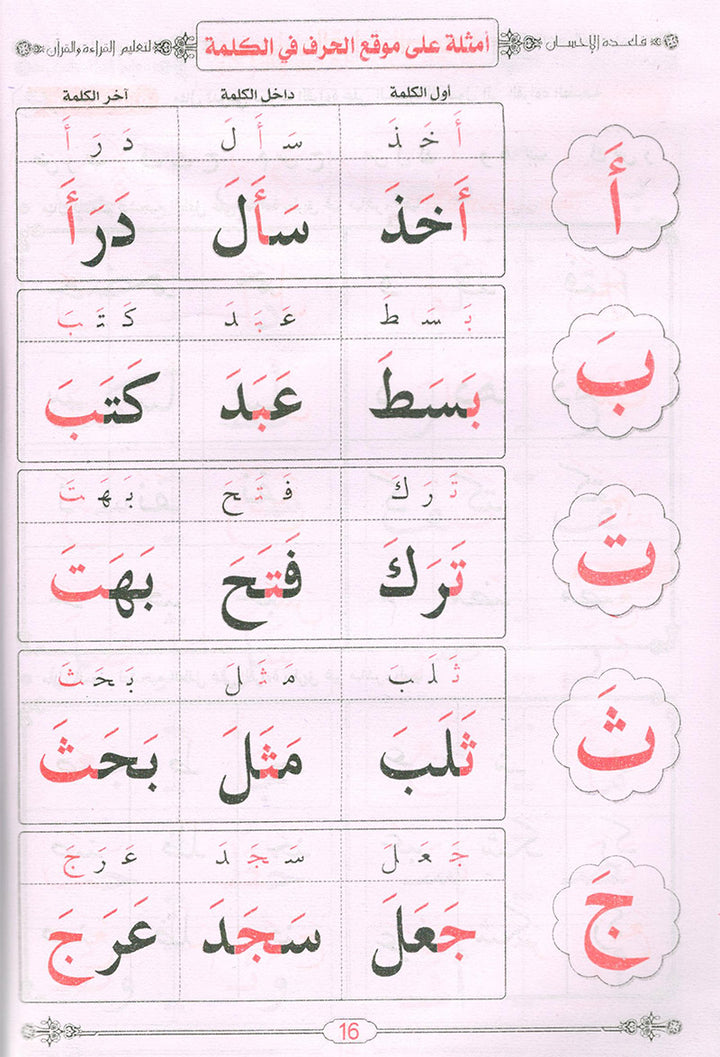 قاعدة الإحسان أمثلة على موقع الحرف في الكلمة لتعليم القراءة والقرآن
أول الكلمة داخل الكلمة آخر الكلمة
أَ خَ ذَ سَ أَ لَ دَ رَ أَ
أَ أَخَذَ سَأَلَ دَرَأَ
بَ سَ طَ عَ بَ دَ كَ تَ بَ
بَ بَسَطَ عَبَدَ كَتَبَ
تَ رَ كَ فَ تَ حَ بَ هَ تَ
تَ تَرَكَ فَتَحَ بَهَتَ
ثَ لَ بَ مَ ثَ لَ بَ حَ ثَ
ثَ ثَلَبَ مَثَلَ بَحَثَ
جَ عَ لَ سَ جَ دَ عَ رَ جَ
جَ جَعَلَ سَجَدَ عَرَجَ
16